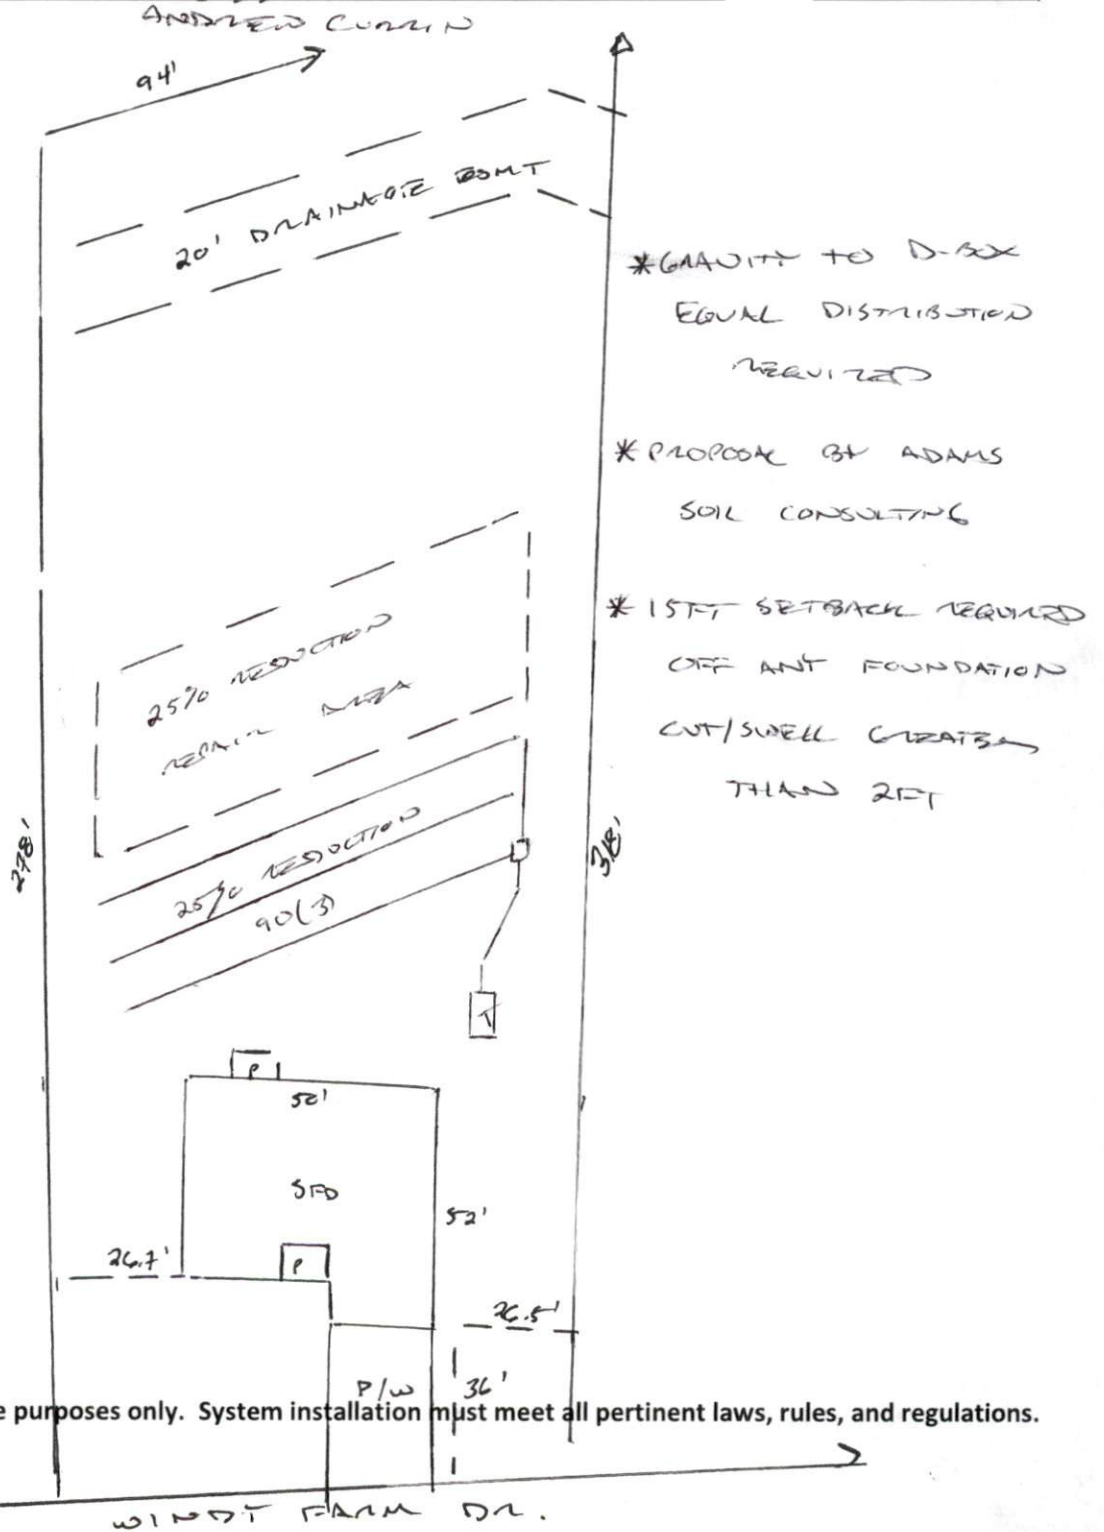 ANDREW CURRIN
94'
20' DRAINAGE ESMT
*GRAVITY TO D-BOX
EQUAL DISTRIBUTION
REQUIRED
*PROPOSAL BY ADAMS
SOIL CONSULTING
* 15FT SETBACK REQUIRED
OFF ANY FOUNDATION
CUT/SWELL GREATER
THAN 2FT
25% REDUCTION
REPAIR AREA
278'
318'
25% REDUCTION
90(3)
T
P
50'
SFD
52'
26.7'
P
26.5'
P/W
36'
e purposes only. System installation must meet all pertinent laws, rules, and regulations.
WINDY FARM DR.